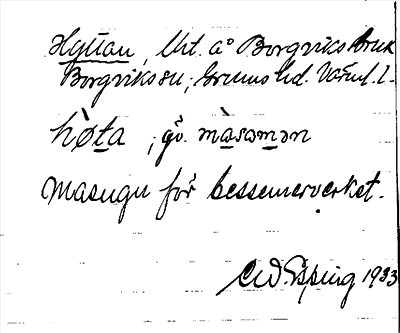 Hyttan, Lht. å Borgviks bruk
Borgviks sn, Grums hd. Värml. l.
hø̀ta, gò. màsəmən
Masugn för bessemerverket.
1933